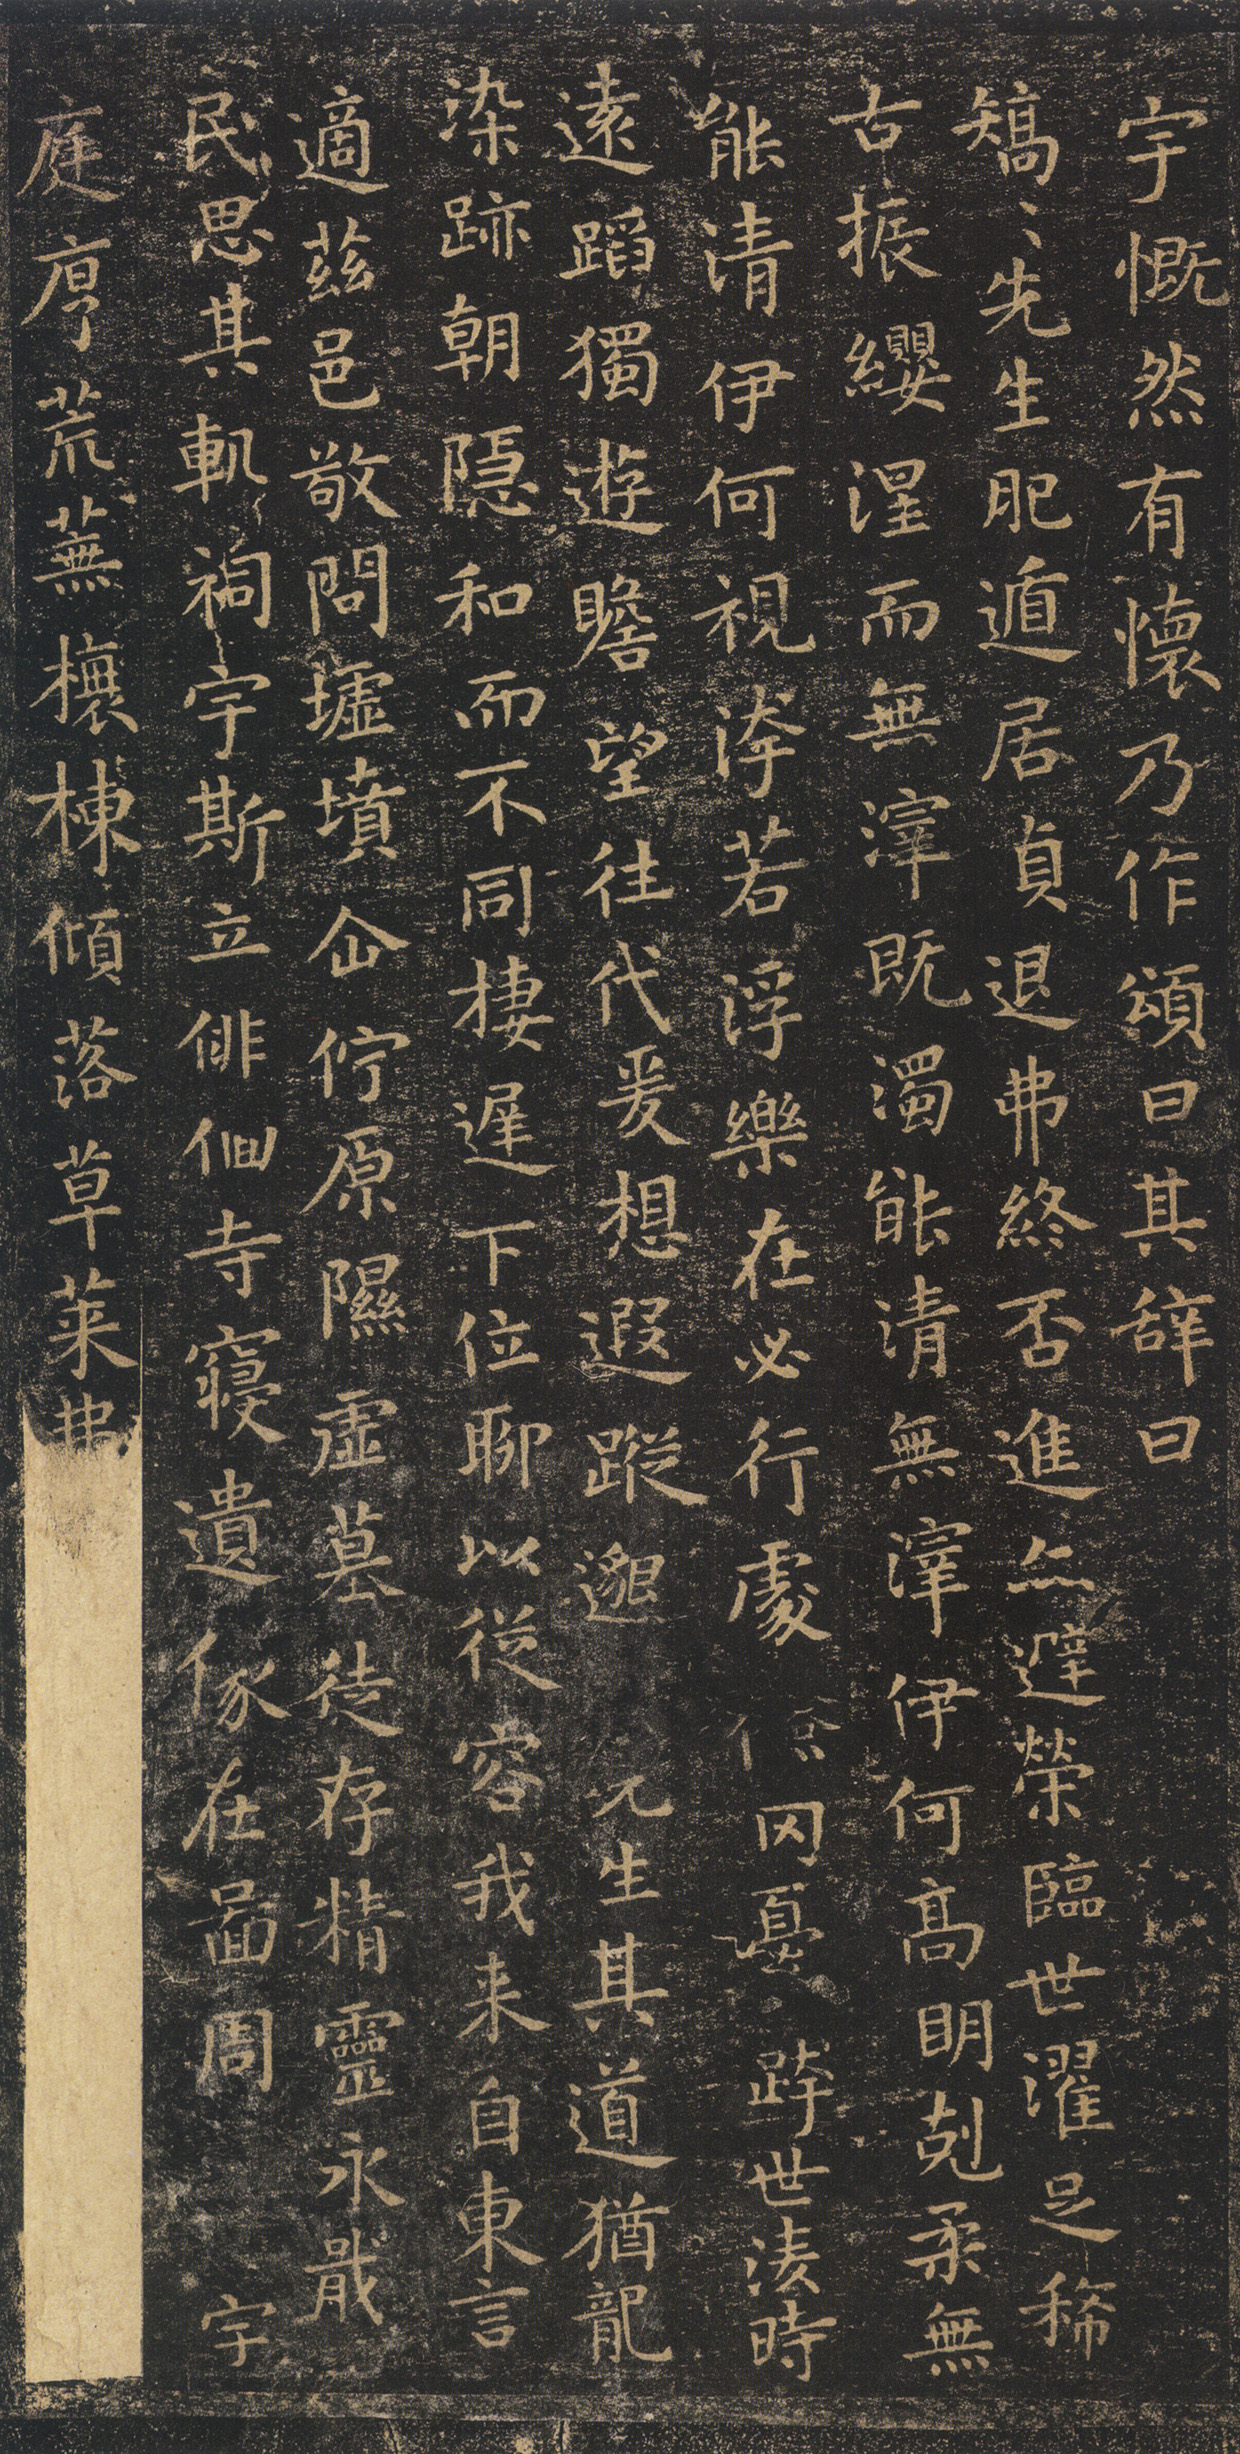 宇慨然有懷乃作頌曰其辭曰
矯〻先生肥遁居貞退弗終否進亦避榮臨世濯足稀
古振纓涅而無滓既濁能清無滓伊何高明剋柔無
能清伊何視洿若浮樂在必行處儉罔憂跨世淩時
遠蹈獨遊瞻望往代爰想遐蹤邈先生其道猶龍
染跡朝隱和而不同棲遲下位聊以從容我来自東言
適茲邑敬問墟墳企佇原隰虛墓徒存精靈永戢
民思其軌祠宇斯立俳佪寺寝遺像在圖周宇
庭序荒蕪榱棟傾落草萊弗